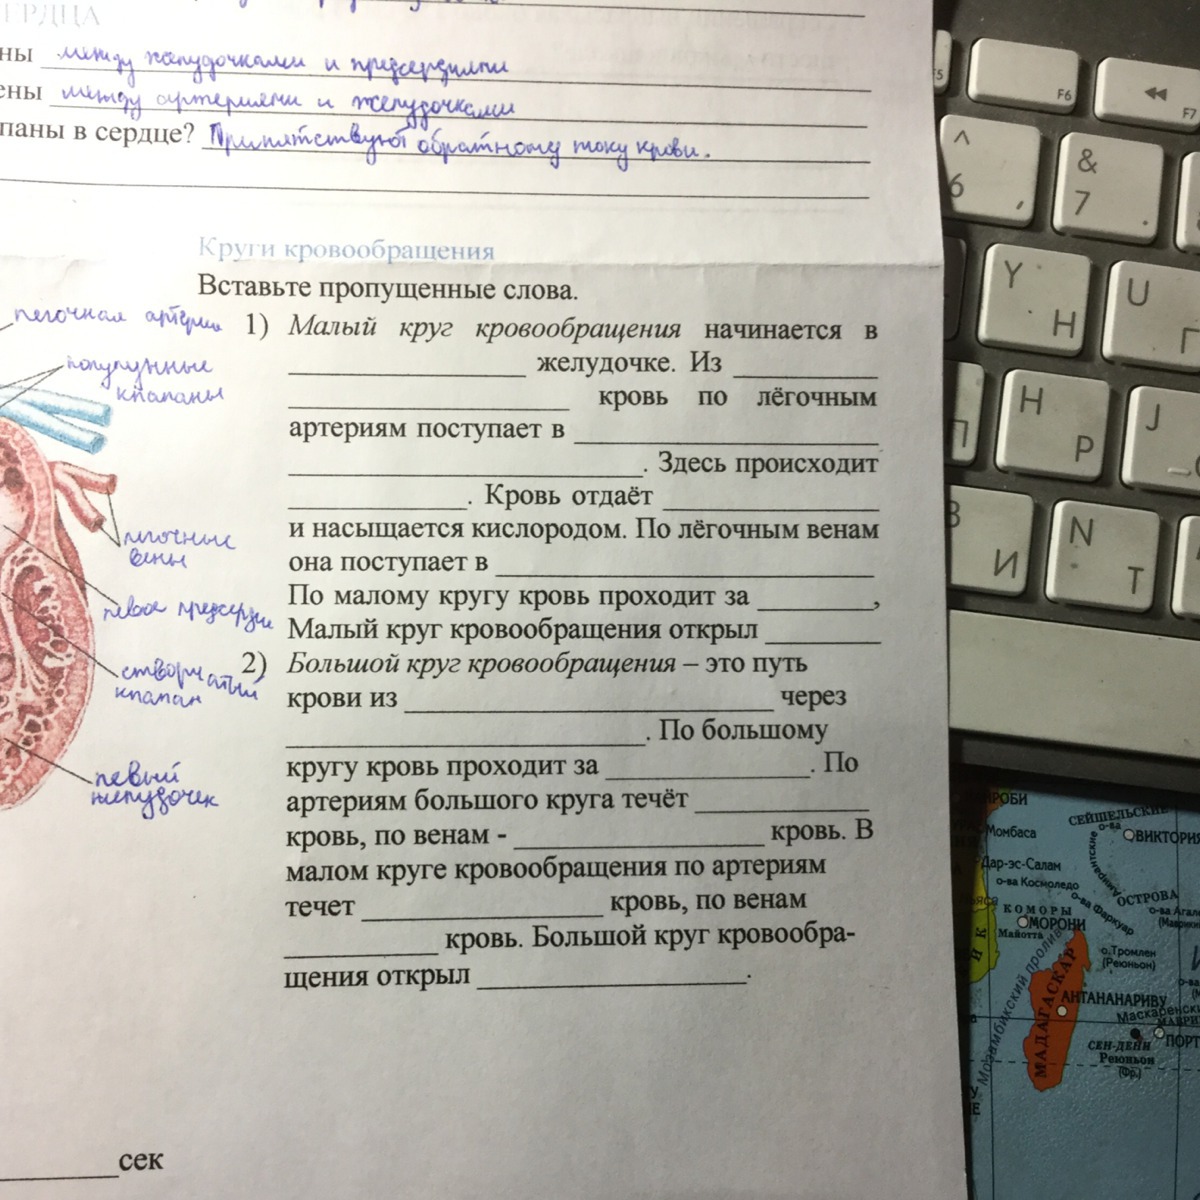 ЕРДЦА
ны между желудочками и предсердиями
ены между артериями и желудочками
паны в сердце? Припятствуют обратному току крови.
Круги кровообращения
Вставьте пропущенные слова.
лёгочная артерия
полулунные клапаны
лёгочные вены
левое предсердие
створчатый клапан
левый желудочек
1) Малый круг кровообращения начинается в
____ желудочке. Из ____
____ кровь по лёгочным
артериям поступает в ____
____. Здесь происходит
____. Кровь отдаёт ____
и насыщается кислородом. По лёгочным венам
она поступает в ____
По малому кругу кровь проходит за ____,
Малый круг кровообращения открыл ____
2) Большой круг кровообращения – это путь
крови из ____ через
____. По большому
кругу кровь проходит за ____. По
артериям большого круга течёт ____
кровь, по венам - ____ кровь. В
малом круге кровообращения по артериям
течет ____ кровь, по венам
____ кровь. Большой круг кровообра-
щения открыл ____.
____сек
F5
F6
F7
^
6
,
&
7
.
Y
Н
U
Г
П
H
Р
J
В
И
N
Т
РОБИ
Момбаса
СЕЙШЕЛЬСКИЕ
о-ва
ВИКТОРИЯ
Амирантские
Дар-эс-Салам
о-ва Космоледо
ОСТРОВА
о-ва Фаркуар
КОМОРЫ
МОРОНИ
Майотта
о.Тромлен
(Реюньон)
Мозамбикский пролив
МАДАГАСКАР
АНТАНАНАРИВУ
СЕН-ДЕНИ
Реюньон
(Фр.)
ПОРТ